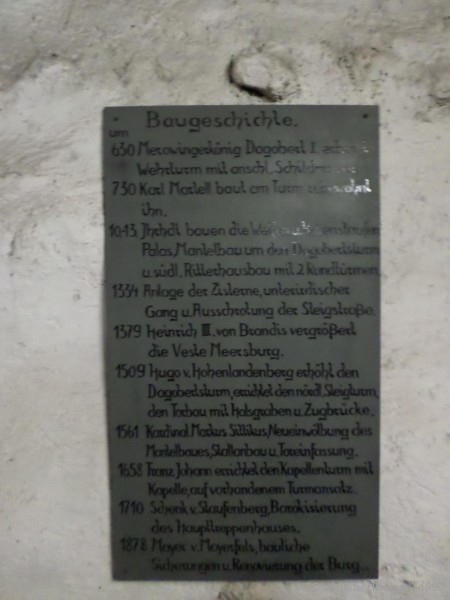 Baugeschichte.
um
630 Merowingerkönig Dagobert I.
Wehrturm mit anschl.
730 Karl Martell baut am Turm
ihn.
Jhrhdt bauen die
Palas, Mantelbau um den Dagobertsturm
u. südl. Ritterhausbau mit 2 Rundtürmen
1334 Anlage der Zisterne, unterirdischer
Gang u. Ausschrotung der Steigstraße.
1379 Heinrich III. von Brandis vergrößert
die Veste Meersburg.
1509 Hugo v. Hohenlandenberg erhöht den
Dagobertsturm, errichtet den nördl. Steigturm,
den Torbau mit Halsgraben u. Zugbrücke.
1561 Kardinal Markus Sittikus, Neueinwölbung des
Mantelbaues, Stallanbau u. Toreinfassung.
1658 Franz Johann errichtet den Kapellenturm mit
Kapelle, auf vorhandenem Turmansatz.
1710 Schenk v. Staufenberg, Barokisierung
des Haupttreppenhauses.
1878 Mayer v. Mayerfels, bauliche
Sicherungen u. Renovierung der Burg.